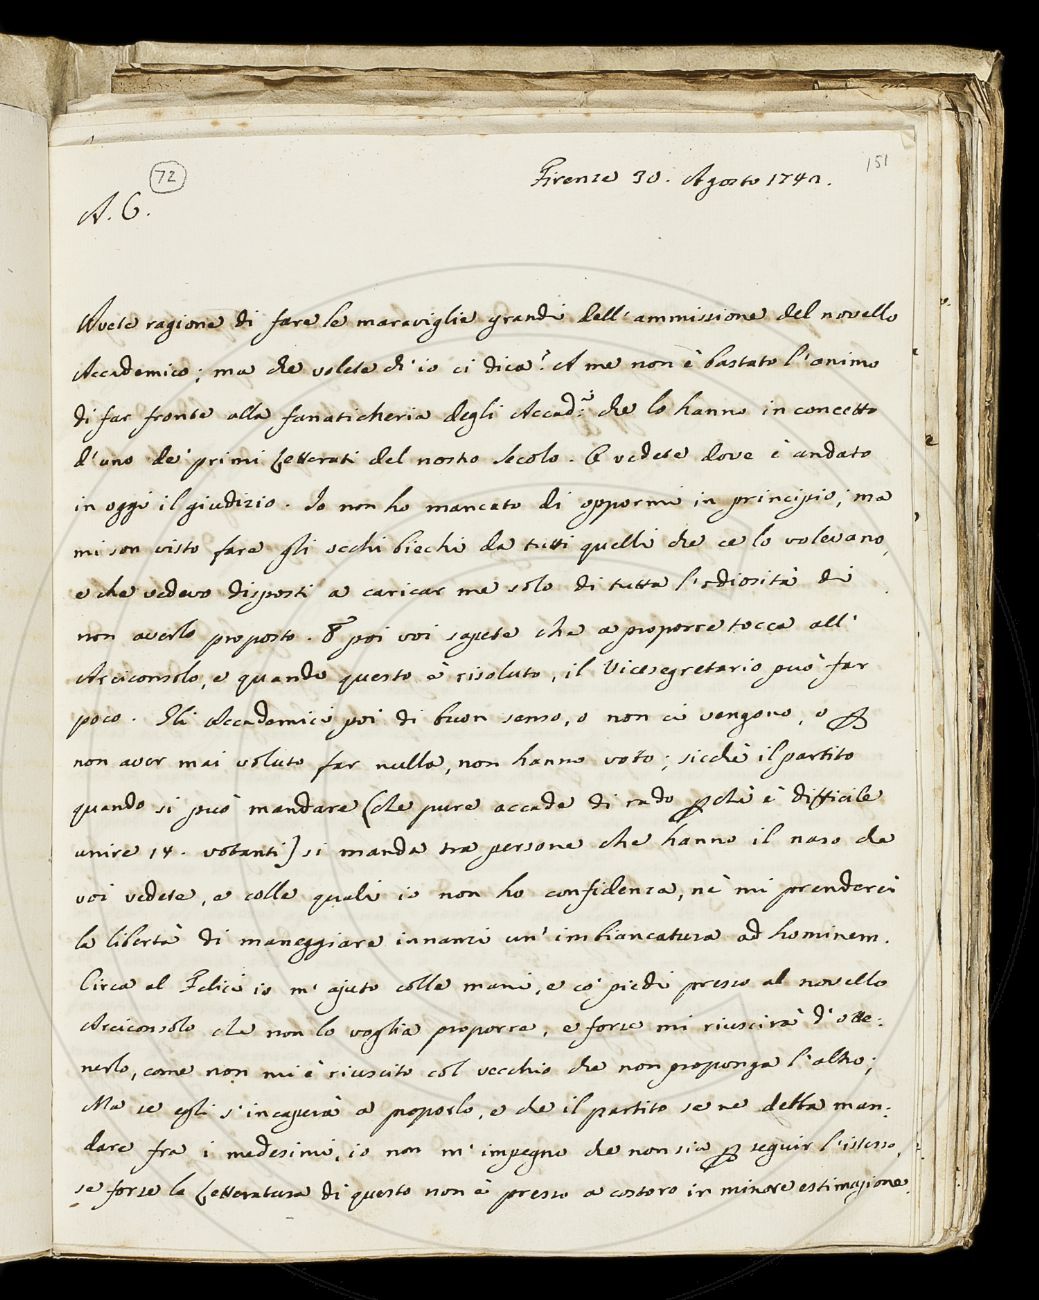 72
151
Firenze 30. Agosto 174
A. C.
Avete ragione di fare le maraviglie grandi dell'ammissione del novello
Accademico; ma che volete ch'io ci dica? A me non è bastato l'animo
di far fronte alla fanaticheria degli Accad.ci che lo hanno in concetto
d'uno de' primi Letterati del nostro Secolo. E vedete dove è andato
in oggi il giudizio. Io non ho mancato di oppormi in principio; ma
mi son visto fare gli occhi biechi da tutti quelli che ce lo volevano,
e che vedevo disposti a caricar me solo di tutta l'odiosità di
non averlo proposto. E poi voi sapete che a proporre tocca all'
Arciconsolo, e quando questo è risoluto, il Vicesegretario può far
poco. Gli Accademici poi di buon senso, o non ci vengono, o p
non aver mai voluto far nulla, non hanno voto; sicchè il partito
quando si può mandare (che pure accade di rado pchè è difficile
unire 14. votanti) si manda tra persone che hanno il naso che
voi vedete, e colle quali io non ho confidenza, nè mi prenderei
la libertà di maneggiare innanzi un'imbiancatura ad hominem.
Circa al Felici io m'ajuto colle mani, e co' piedi presso al novello
Arciconsolo che non lo voglia proporre, e forse mi riuscirà d'otte:
nerlo, come non mi è riuscito col vecchio che non proponga l'altro;
Ma se egli s'incaperà a proporlo, e che il partito se ne debba man:
dare fra i medesimi, io non m'impegno che non sia p seguir l'istesso,
se forse la Letteratura di questo non è presso a costoro in minore estimazione.